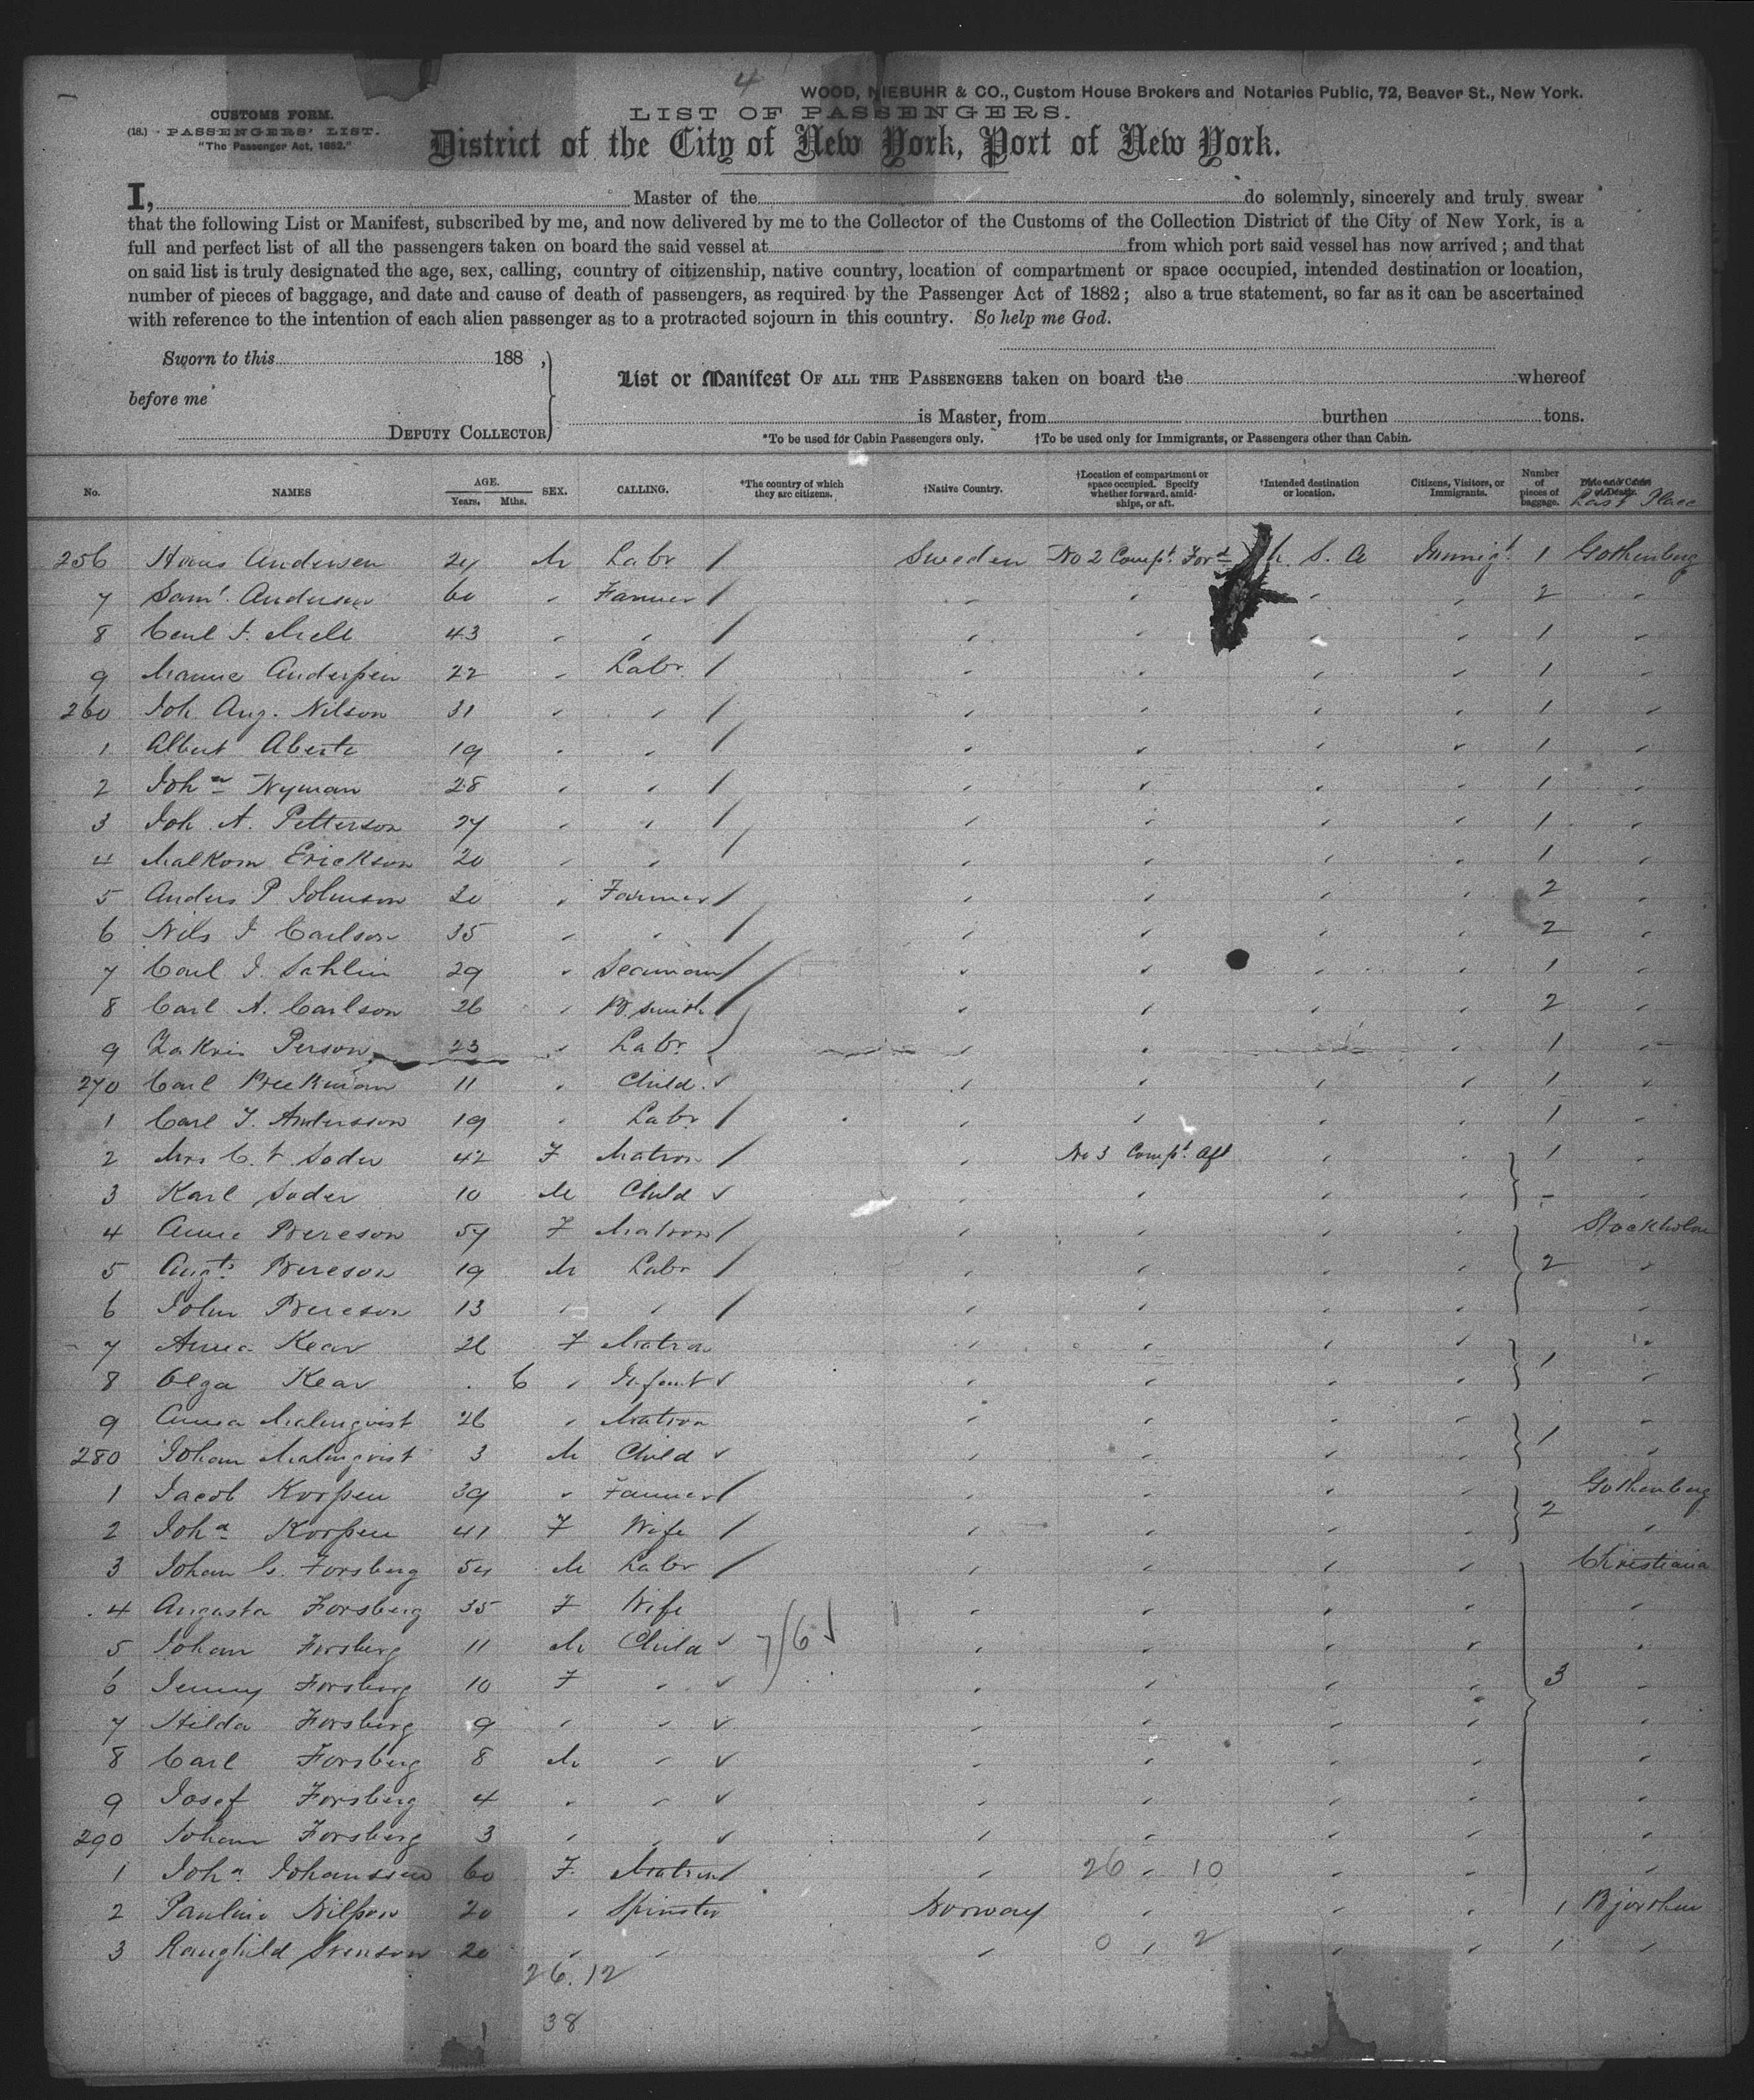 4
WOOD, NIEBUHR & CO., Custom House Brokers and Notaries Public, 72, Beaver St., New York.
CUSTOMS FORM.
(18.) - PASSENGERS' LIST.
"The Passenger Act, 1882."
LIST OF PASSENGERS.
District of the City of New York, Port of New York.
I, Master of the do solemnly, sincerely and truly swear
that the following List or Manifest, subscribed by me, and now delivered by me to the Collector of the Customs of the Collection District of the City of New York, is a
full and perfect list of all the passengers taken on board the said vessel at from which port said vessel has now arrived ; and that
on said list is truly designated the age, sex, calling, country of citizenship, native country, location of compartment or space occupied, intended destination or location,
number of pieces of baggage, and date and cause of death of passengers, as required by the Passenger Act of 1882 ; also a true statement, so far as it can be ascertained
with reference to the intention of each alien passenger as to a protracted sojourn in this country. So help me God.
Sworn to this 188 ,
before me
DEPUTY COLLECTOR
List or Manifest OF ALL THE PASSENGERS taken on board the whereof
is Master, from burthen tons.
*To be used for Cabin Passengers only. †To be used only for Immigrants, or Passengers other than Cabin.
No. NAMES AGE. Years. Mths. SEX. CALLING. *The country of which they are citizens. †Native Country. †Location of compartment or space occupied. Specify whether forward, amidships, or aft. †Intended destination or location. Citizens, Visitors, or Immigrants. Number of pieces of baggage. Date and Cause of Death. Last Place
256 Hans Andersen 24 M Labr / Sweden No 2 Compt. Ford U. S. A Immigt. 1 Gothenburg
7 Saml. Anderson 60 " Farmer / " " " " 2 "
8 Carl 43 " " / " " " " 1 "
9 Anderssen 22 " Labr. / " " " " 1 "
260 Joh. Aug. Nilson 31 " " / " " " " 1 "
1 Albert 19 " " / " " " " 1 "
2 John Nyman 28 " " / " " " " 1 "
3 Joh. A. Petterson 27 " " / " " " " 1 "
4 Malkom Erickson 20 " " / " " " " 1 "
5 Anders P Johnson 20 " Farmer / " " " " 2 "
6 Nils J Carlson 35 " " / " " " " 2 "
7 Carl J. Sahlin 29 " Seaman / " " " " 1 "
8 Carl A. Carlson 26 " Bl. smith / " " " " 2 "
9 Zakris Person 23 " Labr. " " " 1 "
270 Carl 11 " Child. ✓ " " " " 1 "
1 Carl J. Andersson 19 " Labr / " " " " 1 "
2 Mrs C. Soder 42 F Matron / " No 3 Compt. Aft " " 1 "
3 Karl Soder 10 M Child ✓ " " " " - "
4 57 F Matron / " " " " Stockholm
5 Augt. 19 M Labr / " " " " 2 "
6 John 13 " " / " " " " "
7 Anna Kear 26 F Matron " " " " "
8 Olga Kear 6 " Infant ✓ " " " " 1 "
9 Anna Malmqvist 26 " Matron " " " " "
280 Johan Malmqvist 3 M Child ✓ " " " " 1 "
1 Jacob Korssen 39 " Farmer / " " " " Gothenburg
2 Joha Korssen 41 F Wife / " " " " 2 "
3 Johan G. Forsberg 54 M Labr / " " " " Christiania
4 Augusta Forsberg 35 F Wife " " " " "
5 Johan Forsberg 11 M Child ✓ 7/6 " " " " "
6 Jenny Forsberg 10 F " ✓ " " " " 3 "
7 Hilda Forsberg 9 " " ✓ " " " " "
8 Carl Forsberg 8 M " ✓ " " " " "
9 Josef Forsberg 4 " " ✓ " " " " "
290 Johan Forsberg 3 " " ✓ " " " " "
1 Joha. Johanssen 60 F. Matron / " 26 " 10 " " "
2 Pauline Nilsson 20 " Spinster Norway " " " 1
3 Svenson 20 " " " 0 , 2 " " 1 "
26.12
38